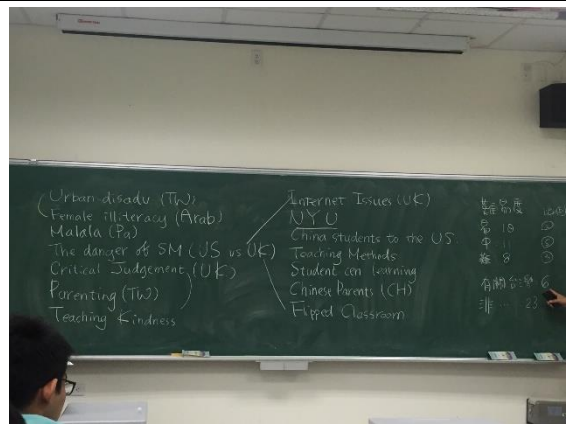 Urban disadv (TW)
Female illiteracy (Arab)
Malala (Pa)
The danger of SM (US vs UK)
Critical Judgement (UK)
Parenting (TW)
Teaching Kindness
Internet Issues (UK)
NYU
China students to the US
Teaching Methods
Student cen learning
Chinese Parents (CH)
Flipped Classroom
難易度
易 18 ①
中 11 ②
難 8 ③
有關台灣 6
非 23